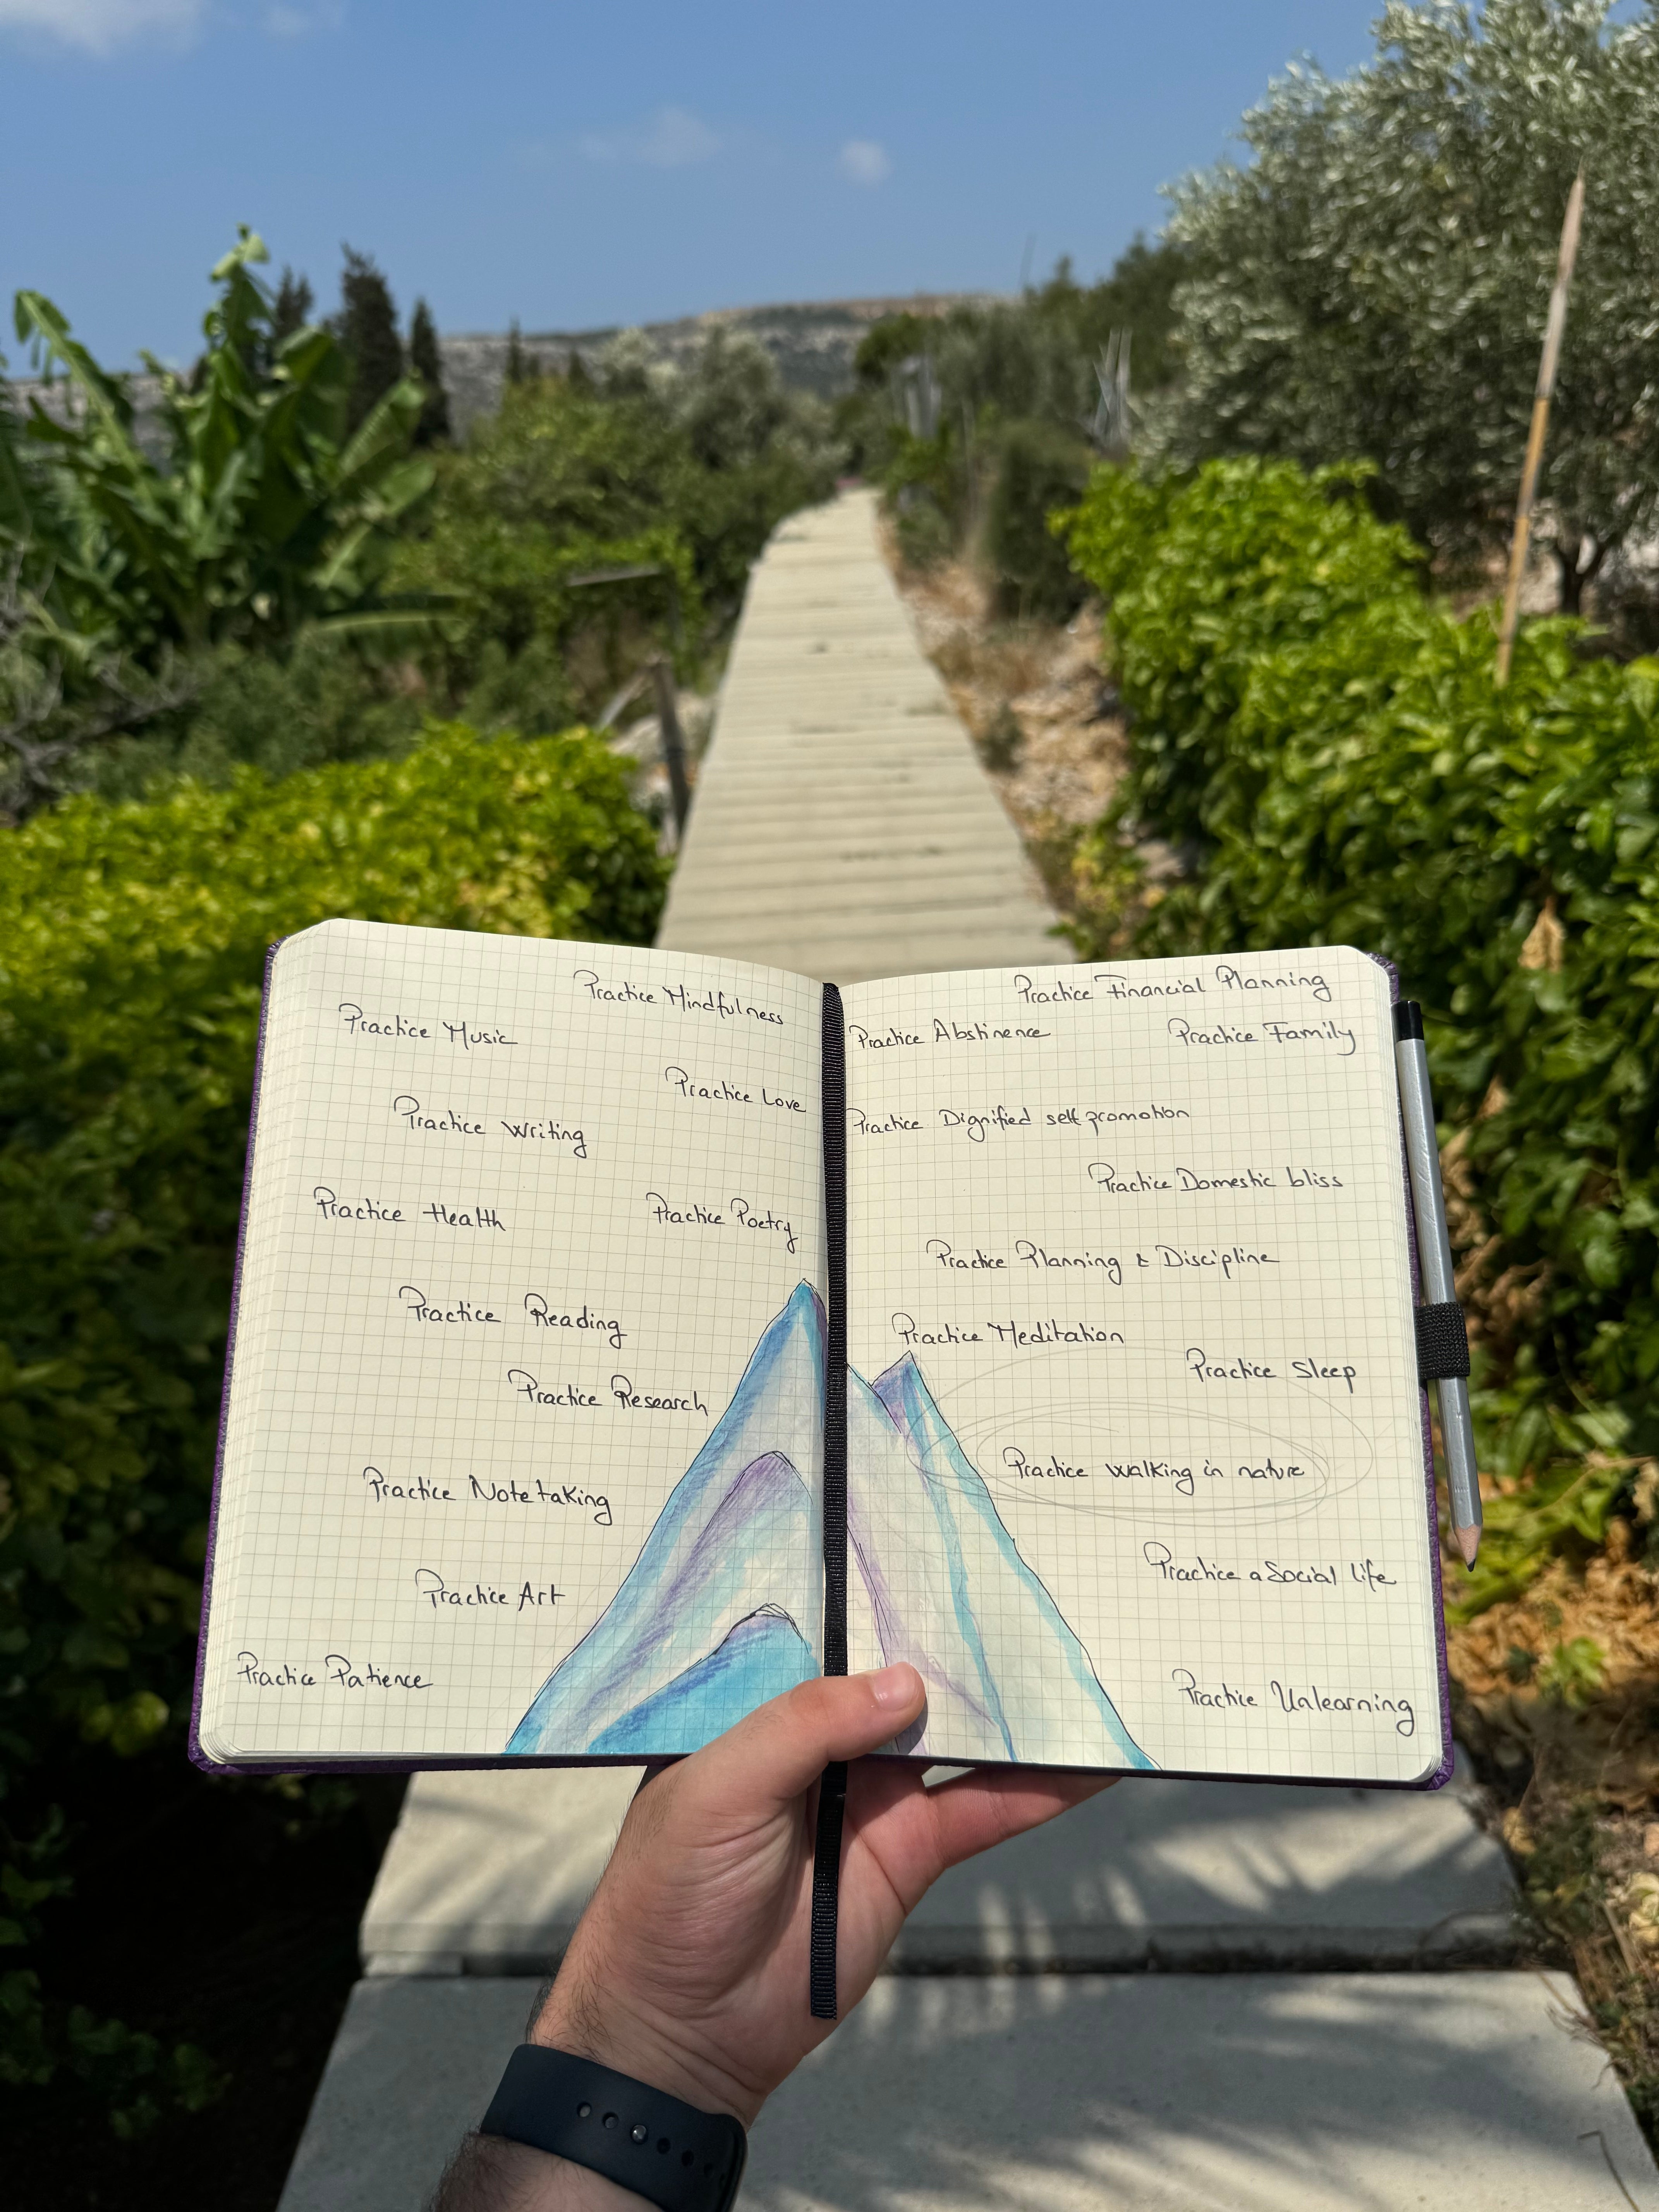 Practice Mindfulness
Practice Music
Practice Love
Practice Writing
Practice Health
Practice Poetry
Practice Reading
Practice Research
Practice Note taking
Practice Art
Practice Patience
Practice Financial Planning
Practice Abstinence
Practice Family
Practice Dignified self promotion
Practice Domestic bliss
Practice Planning & Discipline
Practice Meditation
Practice Sleep
Practice walking in nature
Practice a Social life
Practice Unlearning